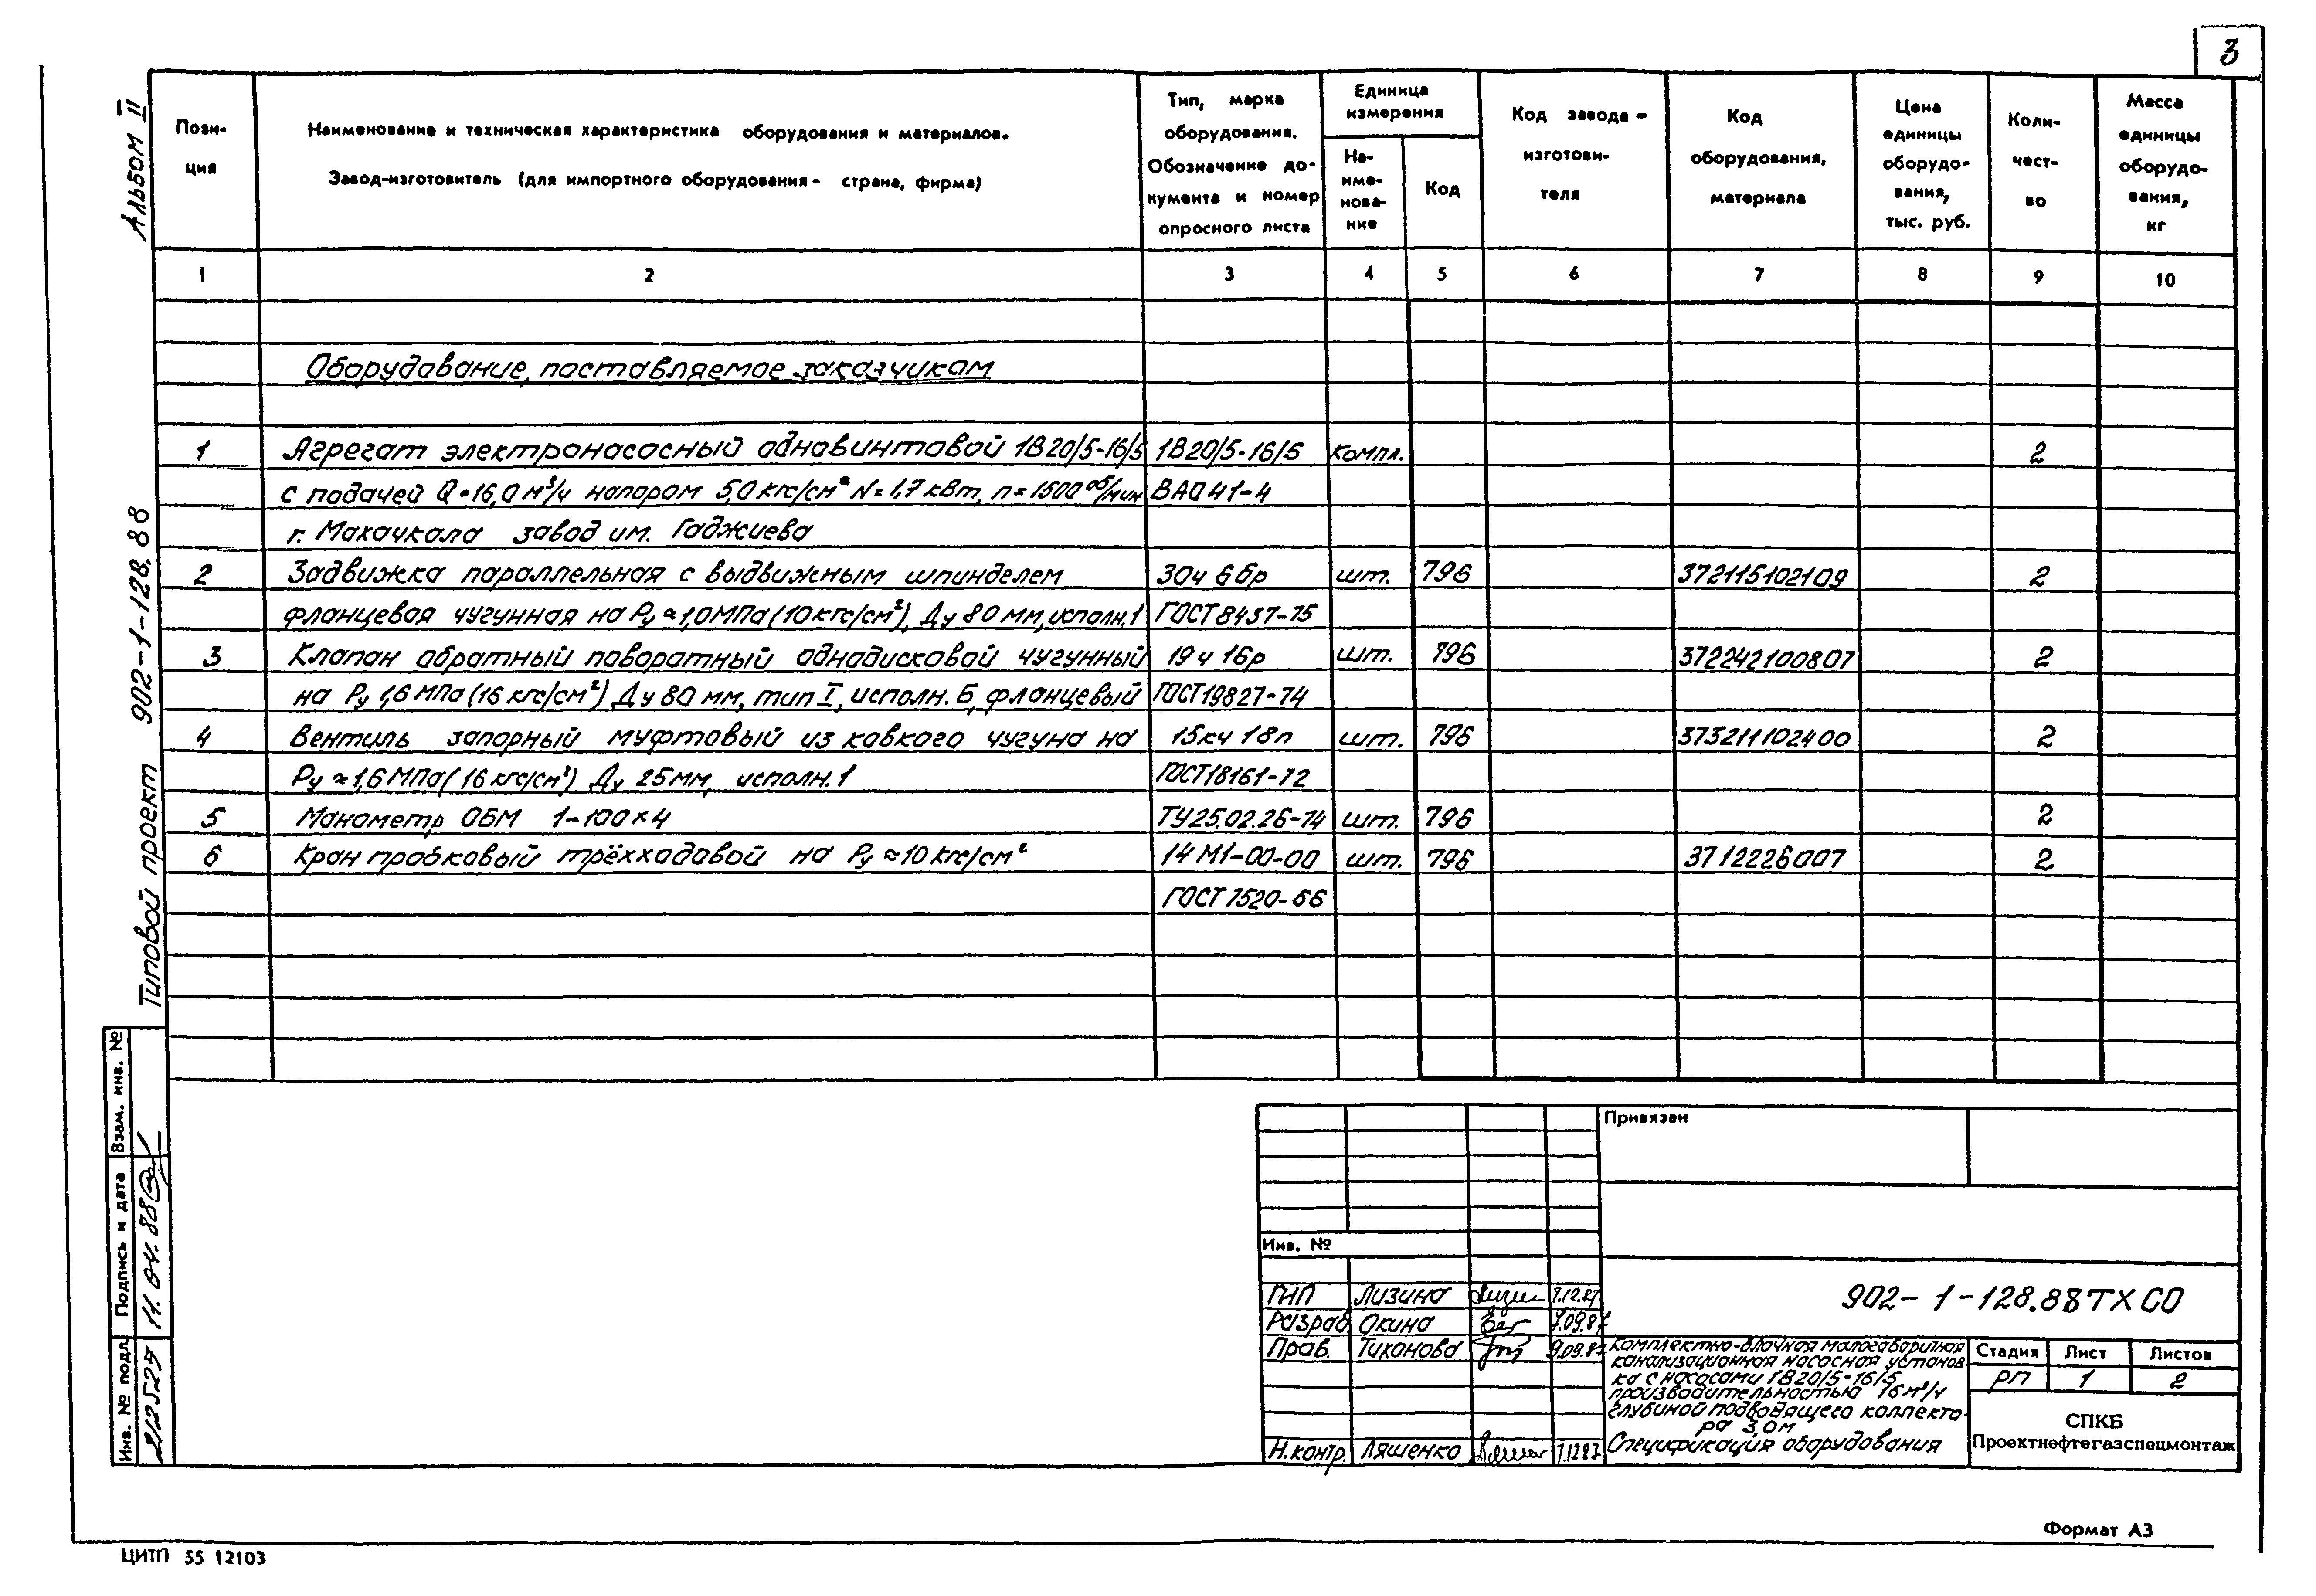 3
Альбом II
Типовой проект 902-1-128.88
Пози-
ция
Наименование и техническая характеристика оборудования и материалов.
Завод-изготовитель (для импортного оборудования - страна, фирма)
Тип, марка
оборудования.
Обозначение до-
кумента и номер
опросного листа
Единица
измерения
На-
име-
нова-
ние
Код
Код завода -
изготови-
теля
Код
оборудования,
материала
Цена
единицы
оборудо-
вания,
тыс. руб.
Коли-
чест-
во
Масса
единицы
оборудо-
вания,
кг
1 2 3 4 5 6 7 8 9 10
Оборудование, поставляемое заказчиком
1 Агрегат электронасосный одновинтовой 1В20/5-16/5 1В20/5-16/5 компл. 2
с подачей Q=16,0 м³/ч напором 5,0 кгс/см² N=1,7 кВт, n=1500 об/мин ВАО41-4
г. Махачкала завод им. Гаджиева
2 Задвижка параллельная с выдвижным шпинделем 30ч 6бр шт. 796 372115102109 2
фланцевая чугунная на Ру≈1,0МПа(10кгс/см²), Ду 80мм, исполн.1 ГОСТ8437-75
3 Клапан обратный поворотный однодисковой чугунный 19ч 16р шт. 796 372242100807 2
на Ру 1,6МПа(16кгс/см²) Ду 80 мм, тип I, исполн. Б, фланцевый ГОСТ19827-74
4 Вентиль запорный муфтовый из ковкого чугуна на 15кч 18п шт. 796 373211102400 2
Ру≈1,6МПа(16кгс/см²) Ду 25мм, исполн.1 ГОСТ18161-72
5 Манометр ОБМ 1-100×4 ТУ25.02.26-74 шт. 796 2
6 Кран пробковый трёхходовой на Ру≈10кгс/см² 14М1-00-00 шт. 796 3712226007 2
ГОСТ7520-66
Взам. инв. №
Подпись и дата 11.04.88
Инв. № подл. 212527
Привязан
Инв. №
ГИП Лизина 7.12.87
Разраб. Окина 7.09.87
Пров. Тиханова 9.09.87
Н.контр. Ляшенко 7.12.87
902-1-128.88ТХ СО
Комплектно-блочная малогабаритная
канализационная насосная установ
ка с насосами 1В20/5-16/5
производительностью 16м³/ч
глубиной подводящего коллекто-
ра 3,0м
Спецификация оборудования
Стадия Лист Листов
РП 1 2
СПКБ
Проектнефтегазспецмонтаж
Формат А3
ЦИТП 55 12103